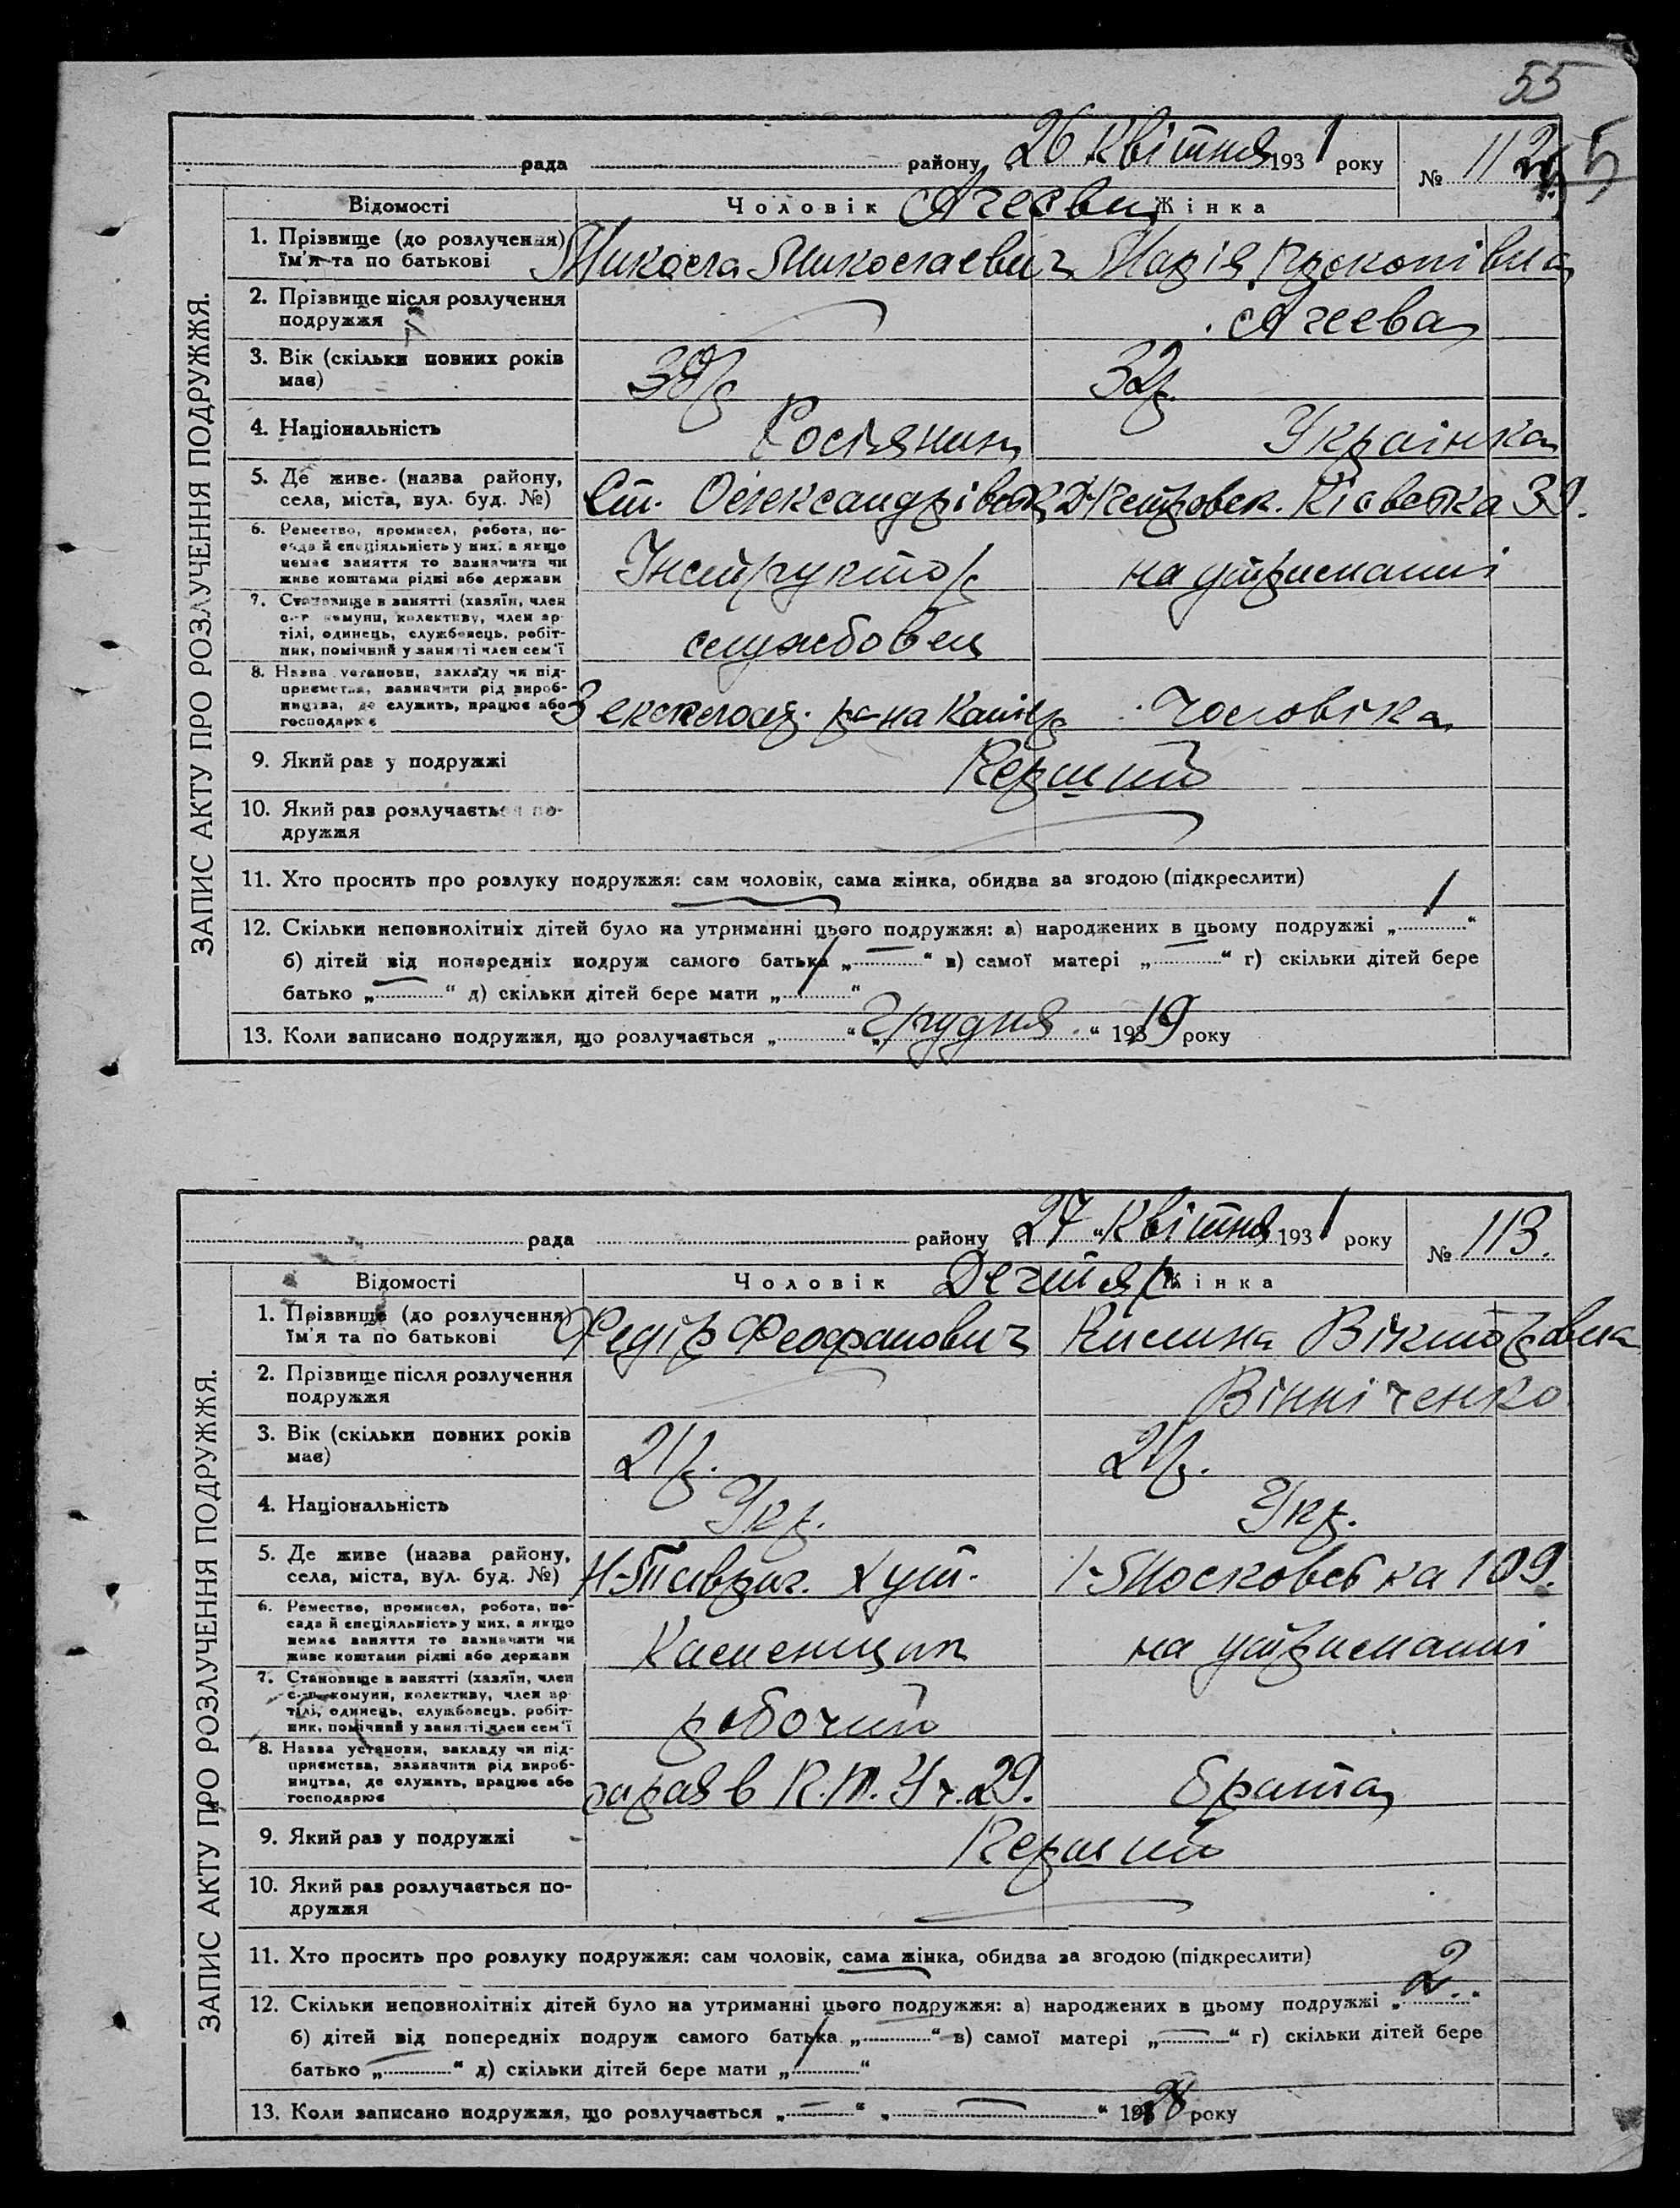 55
ЗАПИС АКТУ ПРО РОЗЛУЧЕННЯ ПОДРУЖЖЯ.
рада району „26 Квітня 1931 року № 112
Відомості Чоловік Агеєви Жінка
1. Прізвище (до розлучення) ім'я та по батькові Микола Миколаевич Марія Прокопівна
2. Прізвище після розлучення подружжя Агеева
3. Вік (скільки повних років має) 32р.
4. Національність Росіянин Українка
5. Де живе (назва району, села, міста, вул. буд. №) Ст. Олександрівськ Д-Петровск. Київська 39.
6. Ремество, промисел, робота, посада й спеціяльність у них, а якщо немає заняття то зазначити чи живе коштами рідні або держави Інструктор на утриманні
7. Становище в занятті (хазяїн, член с.-г комуни, колективу, член артілі, одинець, службовець, робітник, помічний у занятті член сем'ї службовец
8. Назва установи, закладу чи підприємства, зазначити рід виробництва, де служить, працює або господарює 3 експлоат. р-на Чоловіка
9. Який раз у подружжі Перший
10. Який раз розлучається подружжя
11. Хто просить про розлуку подружжя: сам чоловік, сама жінка, обидва за згодою (підкреслити)
12. Скільки неповнолітніх дітей було на утриманні цього подружжя: а) народжених в цьому подружжі „1“
б) дітей від попередніх подруж самого батька „—“ в) самої матері „—“ г) скільки дітей бере
батько „—“ д) скільки дітей бере мати „1“
13. Коли записано подружжя, що розлучається „ “ „Грудня“ 1919 року
ЗАПИС АКТУ ПРО РОЗЛУЧЕННЯ ПОДРУЖЖЯ.
рада району „27 „Квітня 1931 року № 113.
Відомості Чоловік Дегтяр Жінка
1. Прізвище (до розлучення) ім'я та по батькові Федір Феофанович Вікторівна
2. Прізвище після розлучення подружжя Вінніченко
3. Вік (скільки повних років має) 21р. 21р.
4. Національність Укр. Укр.
5. Де живе (назва району, села, міста, вул. буд. №) хут. 1-Московська 109.
6. Ремество, промисел, робота, посада й спеціяльність у них, а якщо немає заняття то зазначити чи живе коштами рідні або держави Каменщик на утриманні
7. Становище в занятті (хазяїн, член с.-г. комуни, колективу, член артілі, одинець, службовець, робітник, помічний у занятті член сем'ї робочий
8. Назва установи, закладу чи підприємства, зазначити рід виробництва, де служить, працює або господарює зараз в ч. 29. брата
9. Який раз у подружжі Перший
10. Який раз розлучається подружжя
11. Хто просить про розлуку подружжя: сам чоловік, сама жінка, обидва за згодою (підкреслити)
12. Скільки неповнолітніх дітей було на утриманні цього подружжя: а) народжених в цьому подружжі „2.“
б) дітей від попередніх подруж самого батька „—“ в) самої матері „—“ г) скільки дітей бере
батько „—“ д) скільки дітей бере мати „ “
13. Коли записано подружжя, що розлучається „—“ „—“ 1928 року